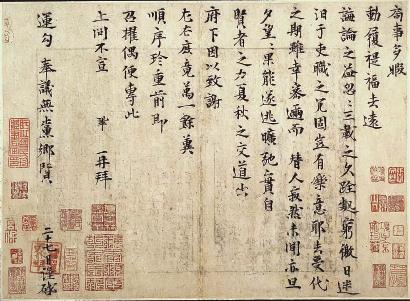 局事多暇
動履禔福去遠
誨論之益忽々三載之久跧處窮徼日迷
汩于吏職之冗固豈有樂意耶去受代
之期雖幸密邇而替人寂然未聞亦旦
夕望々果能遂逃曠弛實自
賢者之力夏秋之交道出
府下因以致謝
左右庶竟萬一餘冀
順序珍重前即
召擢偶便專此
上問不宣 鞏 再拜
運勾奉議無黨鄉賢
二十七日謹啟